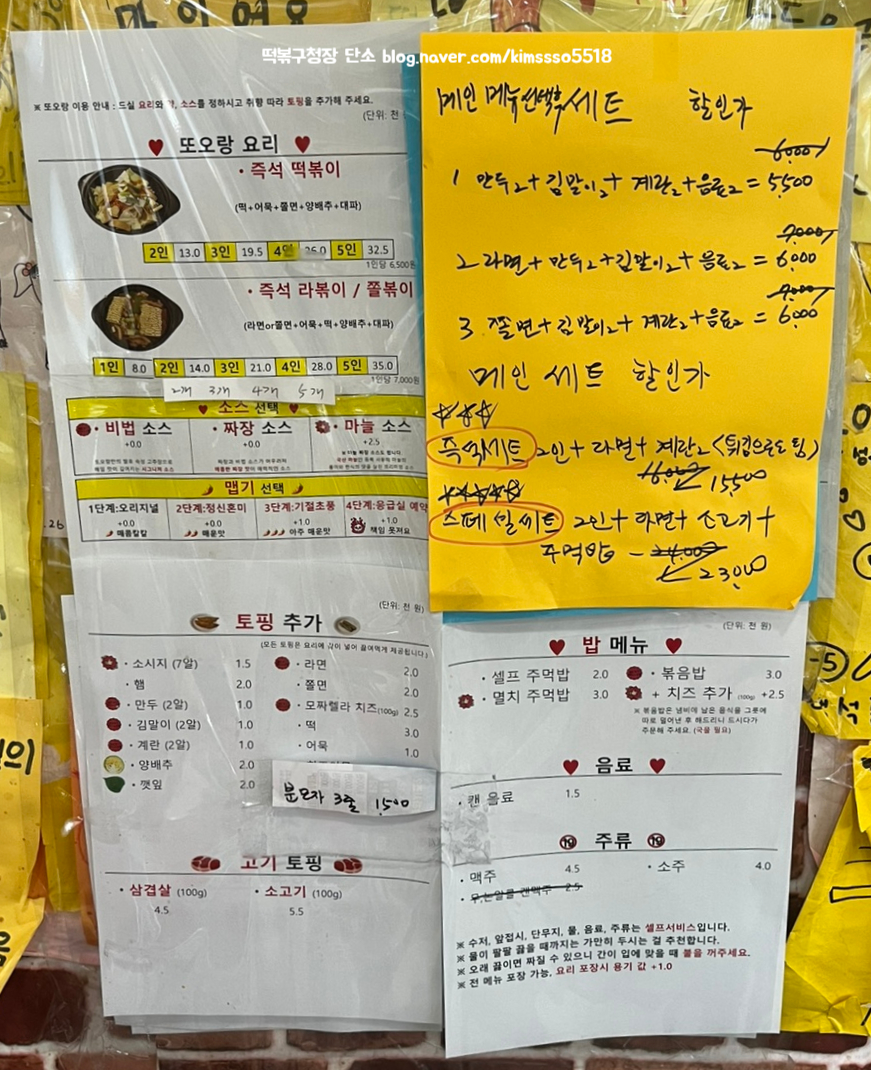 떡볶구청장 단소 blog.naver.com/kimssso5518
※ 또오랑 이용 안내 : 드실 요리와 맵, 소스를 정하시고 취향 따라 토핑을 추가해 주세요.
(단위: 천
또오랑 요리
• 즉석 떡볶이
(떡+어묵+쫄면+양배추+대파)
2인 13.0 3인 19.5 4인 26.0 5인 32.5
1인당 6,500원
• 즉석 라볶이 / 쫄볶이
(라면or쫄면+어묵+떡+양배추+대파)
1인 8.0 2인 14.0 3인 21.0 4인 28.0 5인 35.0
1인당 7,000원
2개 3개 4개 5개
소스 선택
• 비법 소스 • 짜장 소스 • 마늘 소스
+0.0 +0.0 +2.5
맵기 선택
1단계:오리지널 2단계:정신혼미 3단계:기절초풍 4단계:응급실 예약
+0.0 +0.0 +1.0 +1.0
매콤칼칼 매운맛 아주 매운맛 책임 못져요
(단위: 천 원)
토핑 추가
(모든 토핑은 요리에 같이 넣어 끓여먹게 제공됩니다.)
• 소시지 (7알) 1.5
• 햄 2.0
• 만두 (2알) 1.0
• 김말이 (2알) 1.0
• 계란 (2알) 1.0
• 양배추 2.0
• 깻잎 2.0
• 라면 2.0
• 쫄면 2.0
• 모짜렐라 치즈(100g) 2.5
• 떡 3.0
• 어묵 1.0
분모자 3줄 1500
고기 토핑
• 삼겹살 (100g) • 소고기 (100g)
4.5 5.5
메인 메뉴선택후 세트 할인가
6,000
1 만두2+김말이2+계란2+음료2=5,500
7,000
2 라면+만두2+김말이2+음료2=6,000
7,000
3 쫄면+김말이2+계란2+음료2=6,000
메인 세트 할인가
즉석세트 2인+라면+계란2 (튀김으로도 됨)
16,000 15,500
스페셜세트 2인+라면+소고기+
주먹밥 - 24,000
23,000
(단위: 천 원)
밥 메뉴
• 셀프 주먹밥 2.0 • 볶음밥 3.0
• 멸치 주먹밥 3.0 + 치즈 추가 (100g) +2.5
※ 볶음밥은 냄비에 남은 음식을 그릇에
따로 덜어낸 후 해드리니 드시다가
주문해 주세요. (국물 필요)
음료
• 캔 음료 1.5
19 주류 19
• 맥주 4.5 • 소주 4.0
캔맥주 2.5
※ 수저, 앞접시, 단무지, 물, 음료, 주류는 셀프서비스입니다.
※ 물이 팔팔 끓을 때까지는 가만히 두시는 걸 추천합니다.
※ 오래 끓이면 짜질 수 있으니 간이 입에 맞을 때 불을 꺼주세요.
※ 전 메뉴 포장 가능, 요리 포장시 용기 값 +1.0